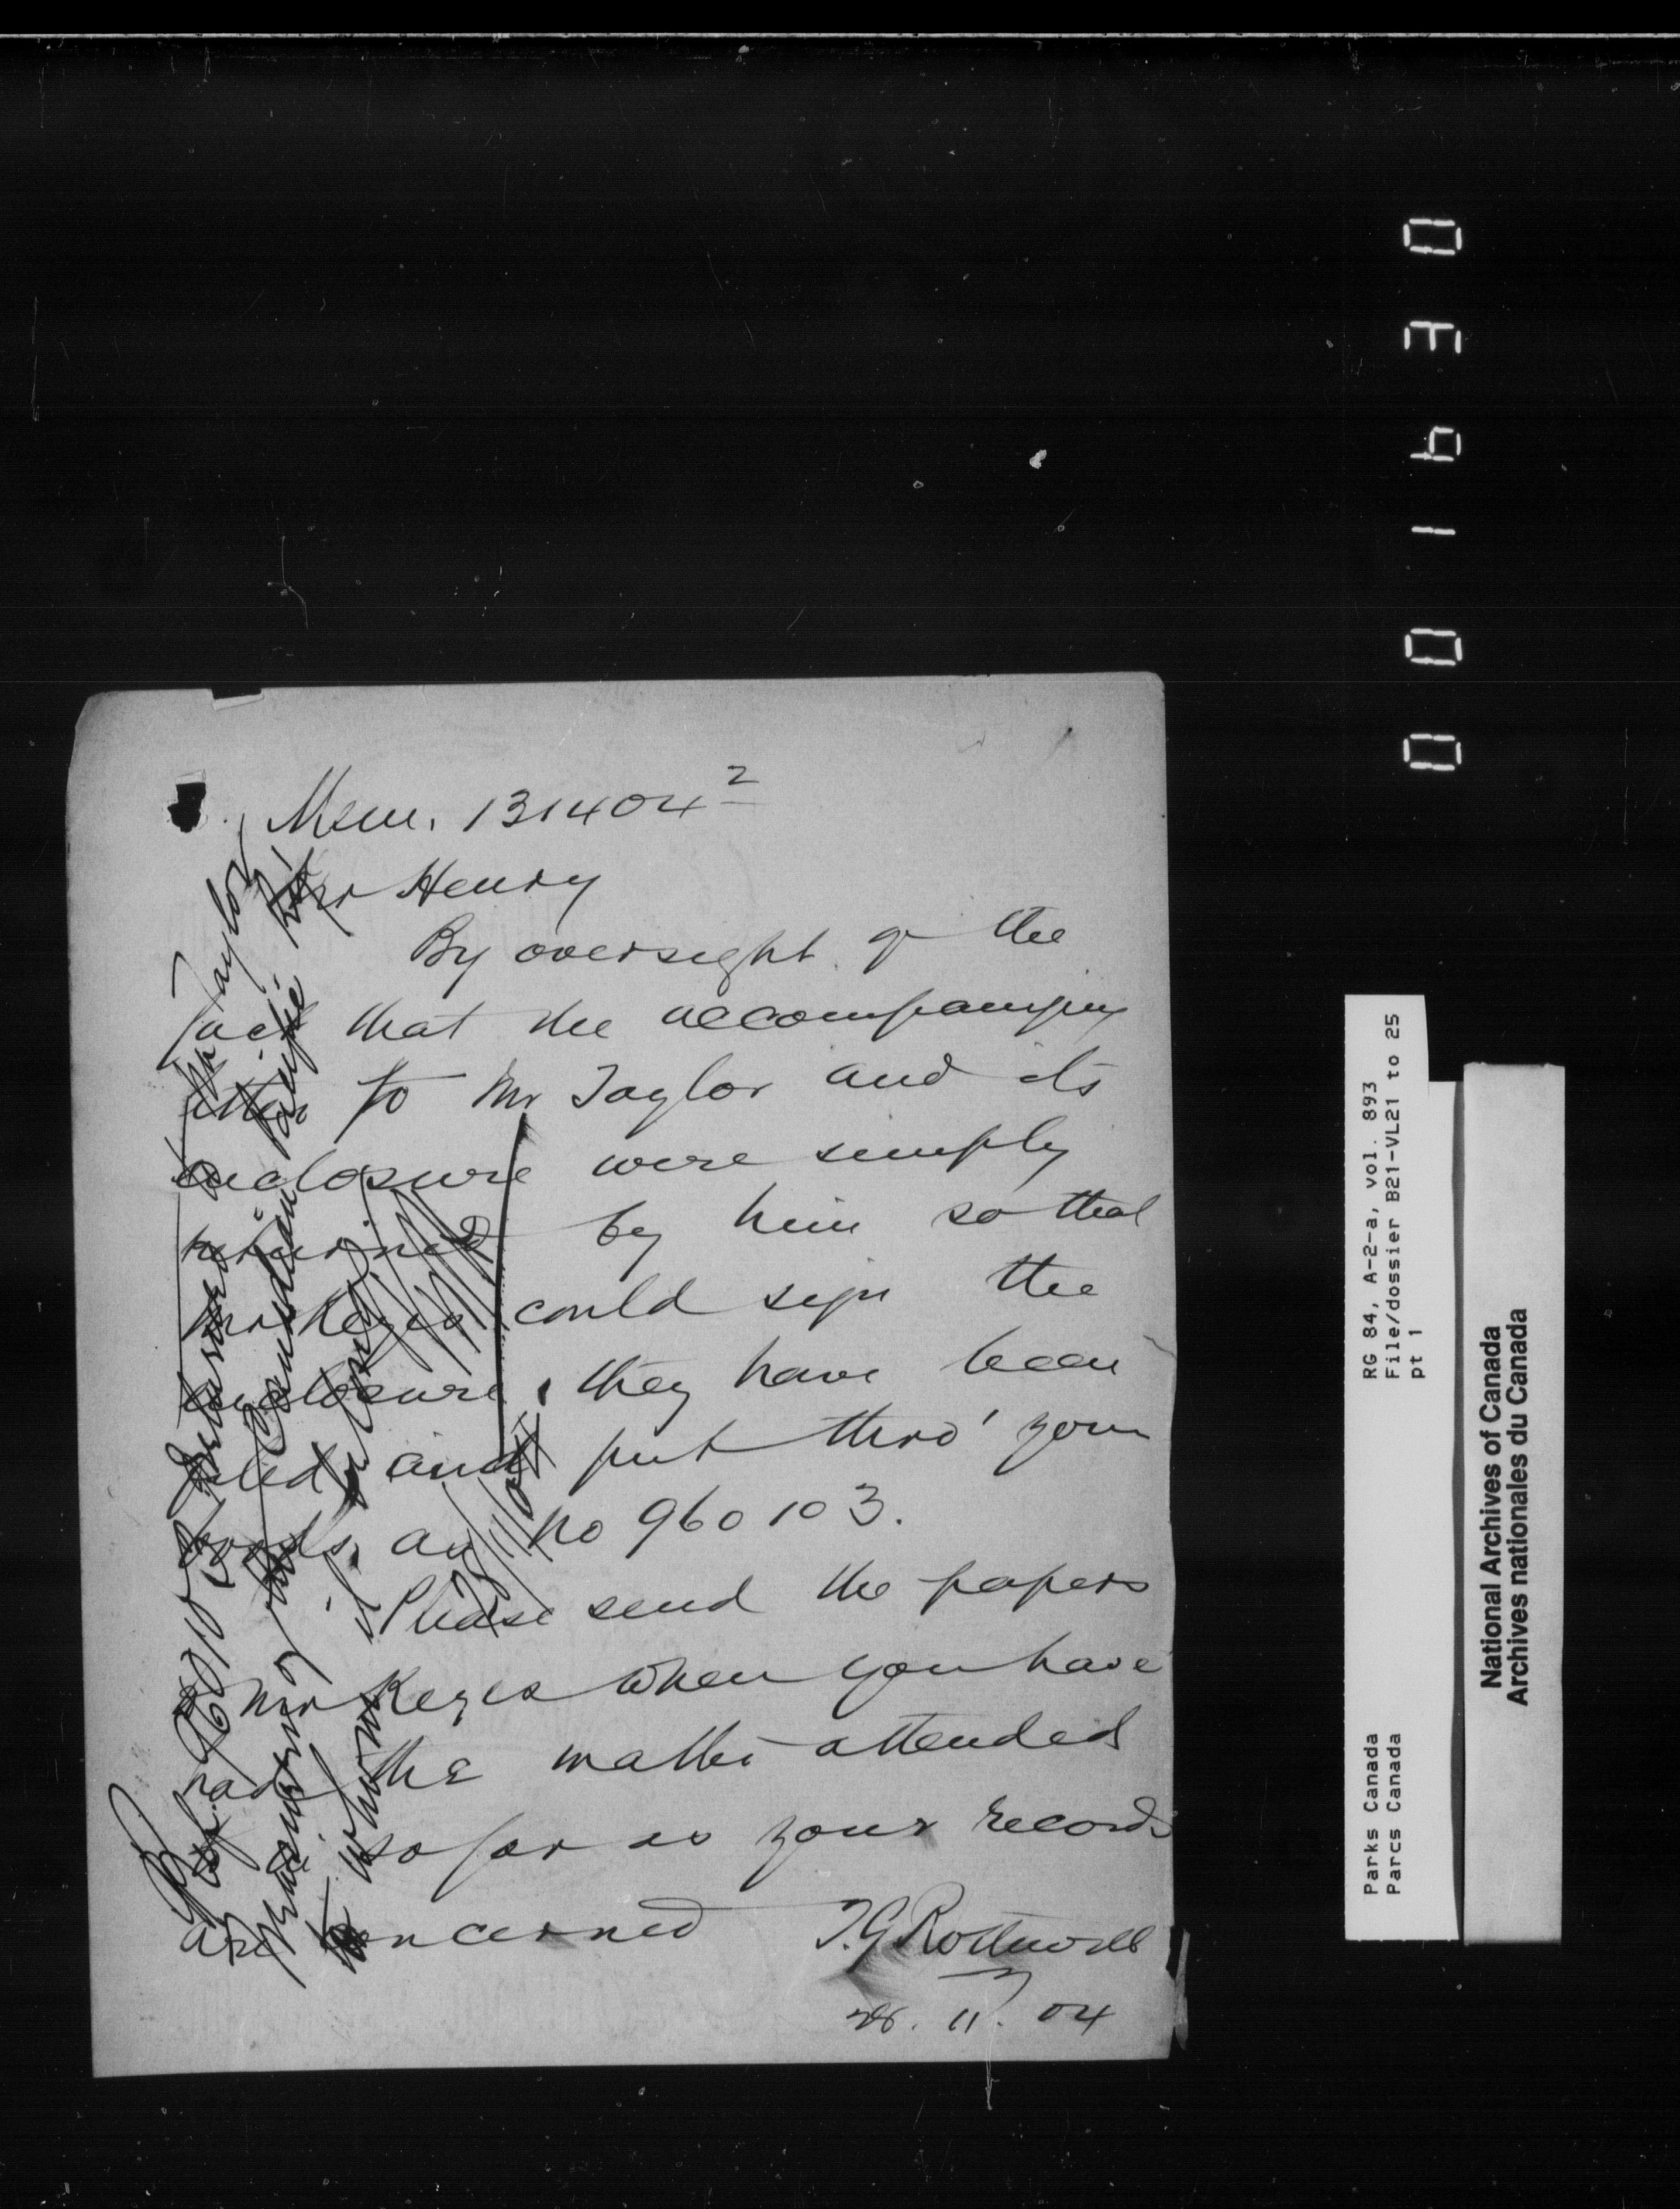 Mem. 131404²
Mr Henry
By oversight of the
fact that the accompanying
letter to Mr Taylor and its
enclosure were simply
returned by him so that
Mr Keyes could sign the
enclosure, they have been
filed and put thro' your
books, as No 960103.
Please send the papers
Mr Keyes when you have
had the matter attended
so far as your records
are concerned
T.G. Rothwell
28.11.04
Ref. 960103 returned to Mr Taylor
28/11/04
0 0 1 6 3 0
RG 84, A-2-a, vol. 893
File/dossier B21-VL21 to 25
pt 1
Parks Canada
Parcs Canada
National Archives of Canada
Archives nationales du Canada